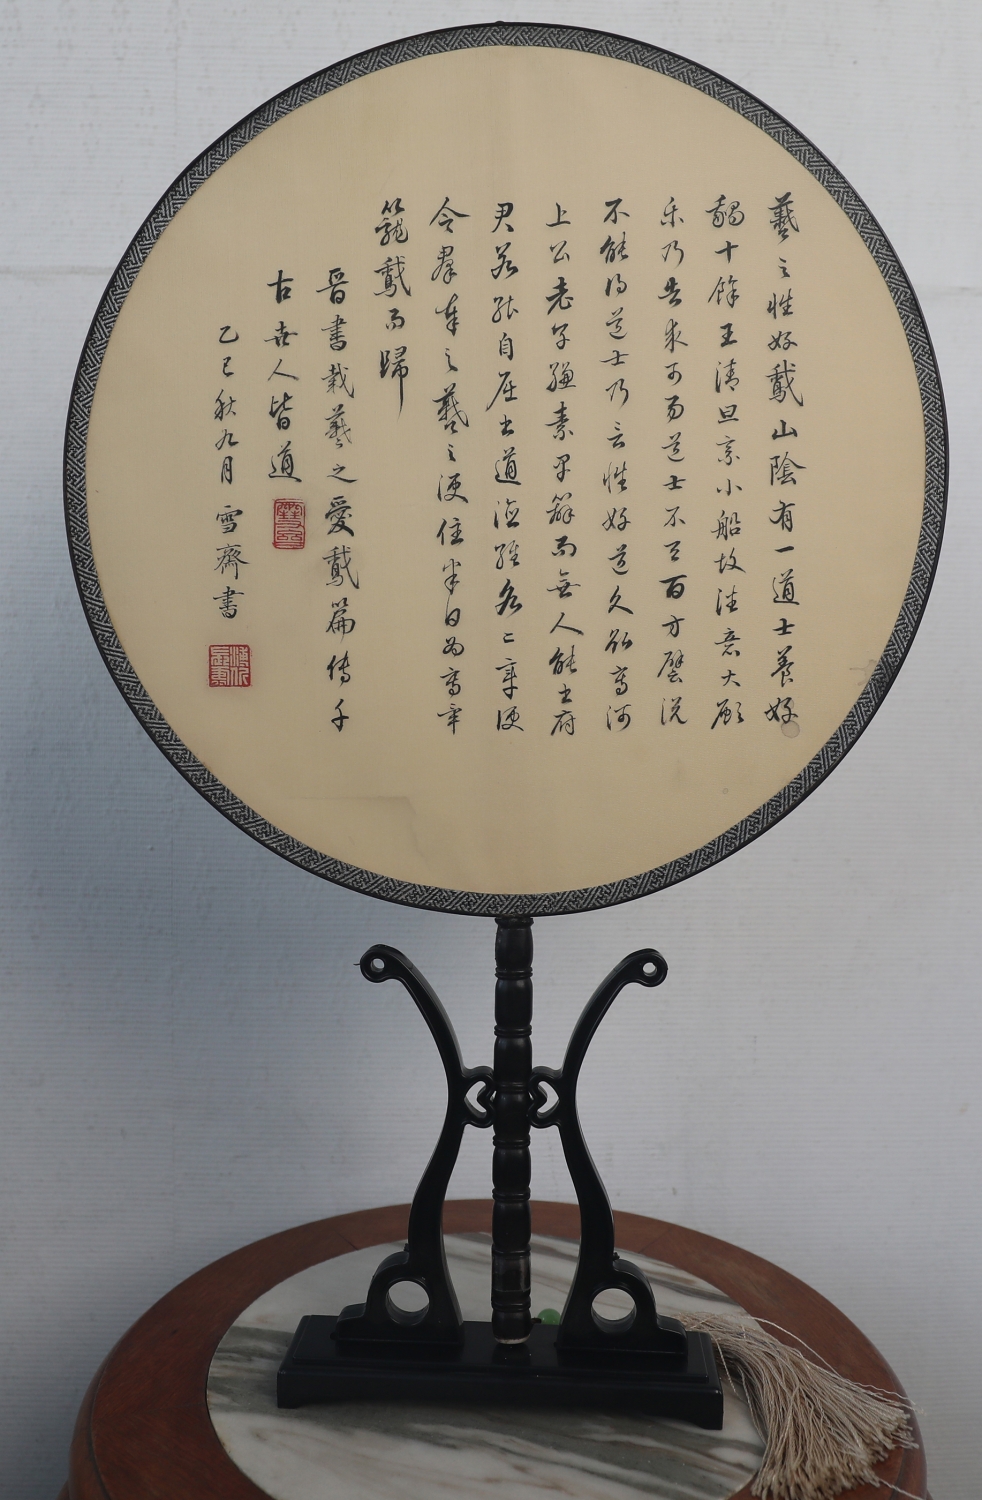 羲之性好鵞山陰有一道士養好
鵝十餘王清旦乘小船故往意大願
樂乃告求市易道士不與百方譬說
不能得道士乃言性好道久欲寫河
上公老子縑素早辦而無人能書府
君若能自屈書道德經各二章便
合群奉之羲之便住半日為寫畢
籠鵞而歸
晉書載羲之愛鵞篇傳千
古世人皆道
乙巳秋九月雪齋書